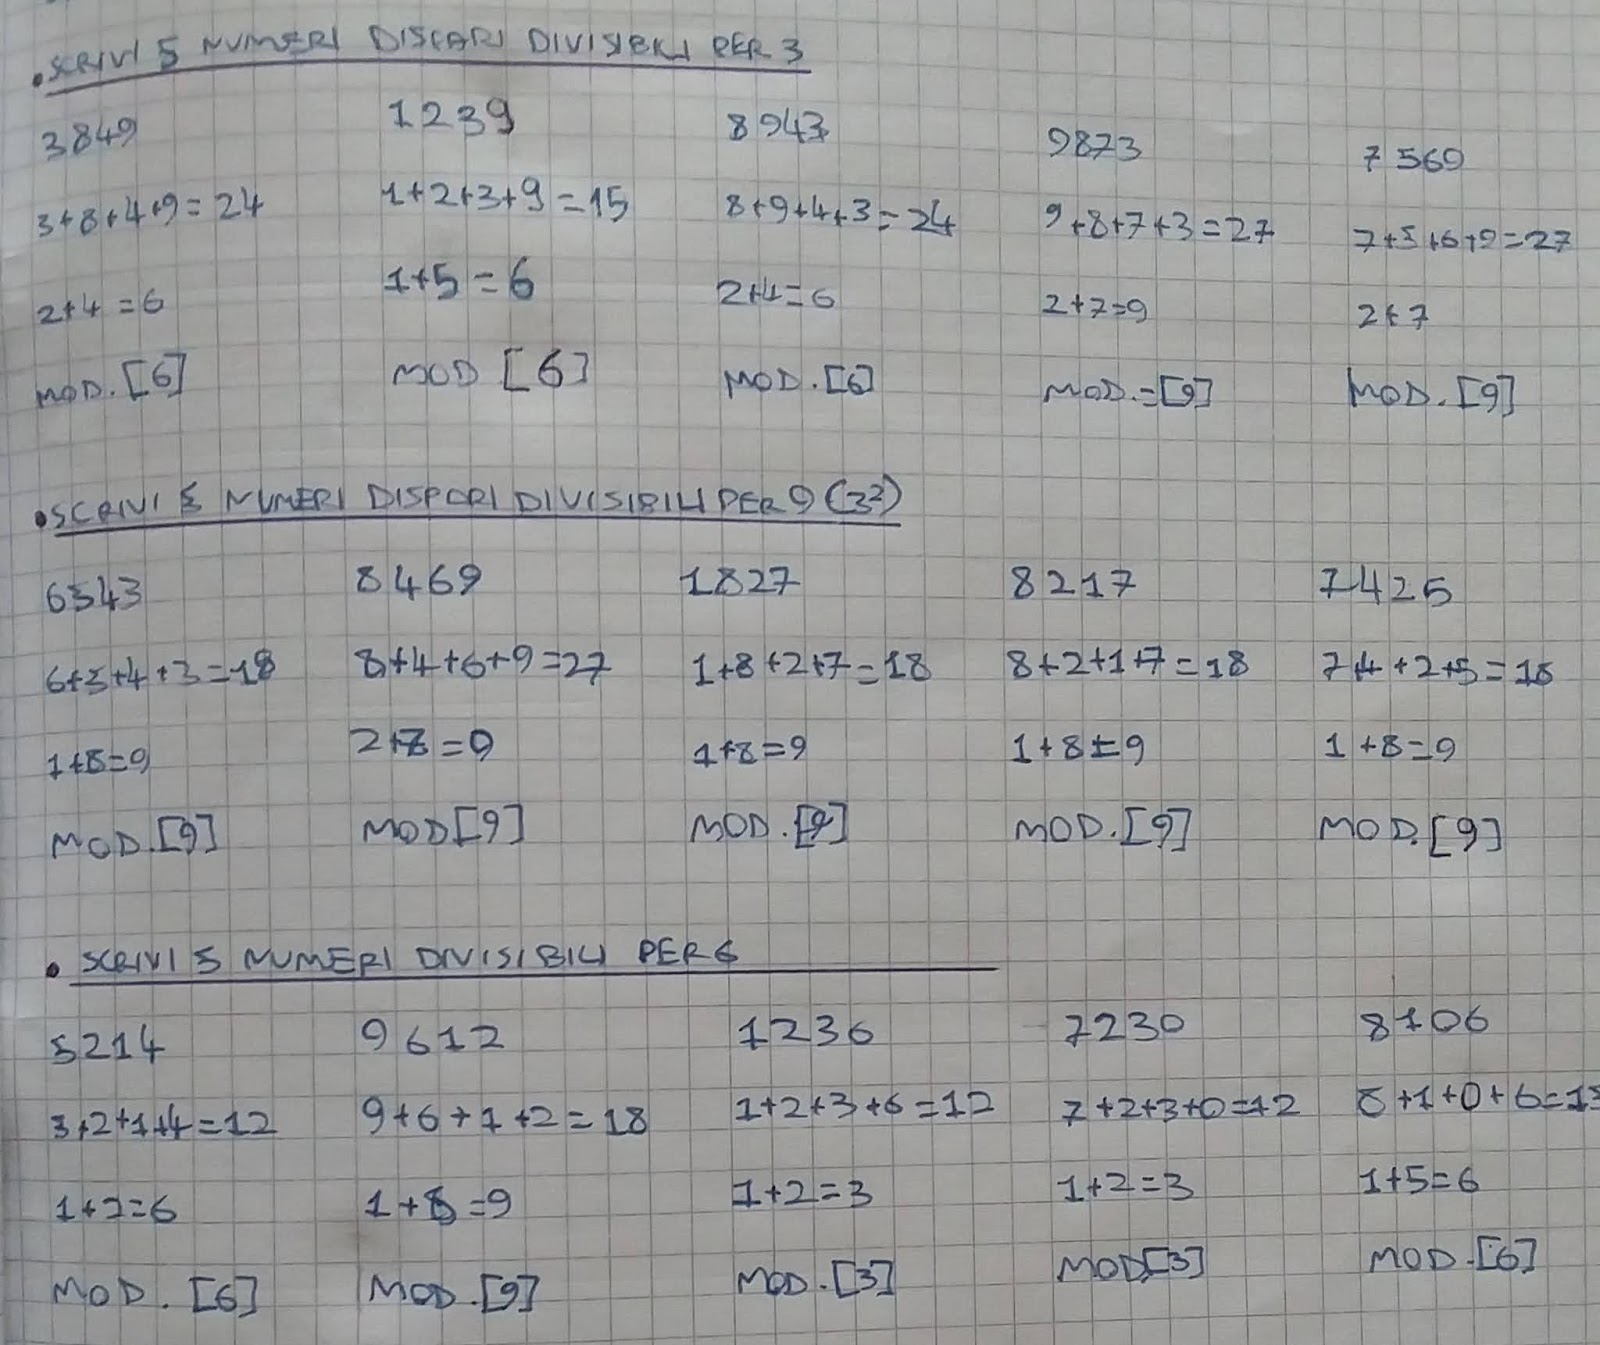 • SCRIVI 5 NUMERI DISPARI DIVISIBILI PER 3
3849 1239 8943 9873 7569
3+8+4+9=24 1+2+3+9=15 8+9+4+3=24 9+8+7+3=27 7+5+6+9=27
2+4=6 1+5=6 2+4=6 2+7=9 2+7
MOD. [6] MOD [6] MOD. [6] MOD.=[9] MOD. [9]
• SCRIVI 5 NUMERI DISPARI DIVISIBILI PER 9 (3²)
6543 8469 1827 8217 7425
6+5+4+3=18 8+4+6+9=27 1+8+2+7=18 8+2+1+7=18 7+4+2+5=18
1+8=9 2+7=9 1+8=9 1+8=9 1+8=9
MOD. [9] MOD [9] MOD. [9] MOD. [9] MOD. [9]
• SCRIVI 5 NUMERI DIVISIBILI PER 6
5214 9612 1236 7230 8106
5+2+1+4=12 9+6+1+2=18 1+2+3+6=12 7+2+3+0=12 8+1+0+6=15
1+2=6 1+8=9 1+2=3 1+2=3 1+5=6
MOD. [6] MOD. [9] MOD. [3] MOD. [3] MOD. [6]